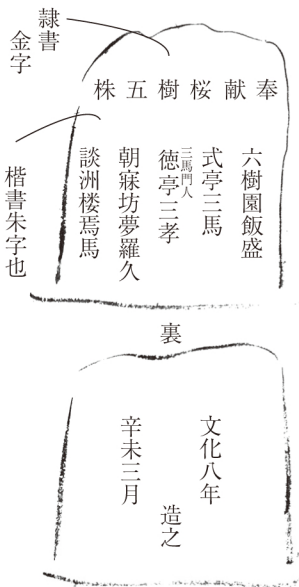 隷書
金字
奉献桜樹五株
六樹園飯盛
式亭三馬
三馬門人
徳亭三孝
朝寐坊夢羅久
談洲楼焉馬
楷書朱字也
裏
文化八年
辛未三月
造之